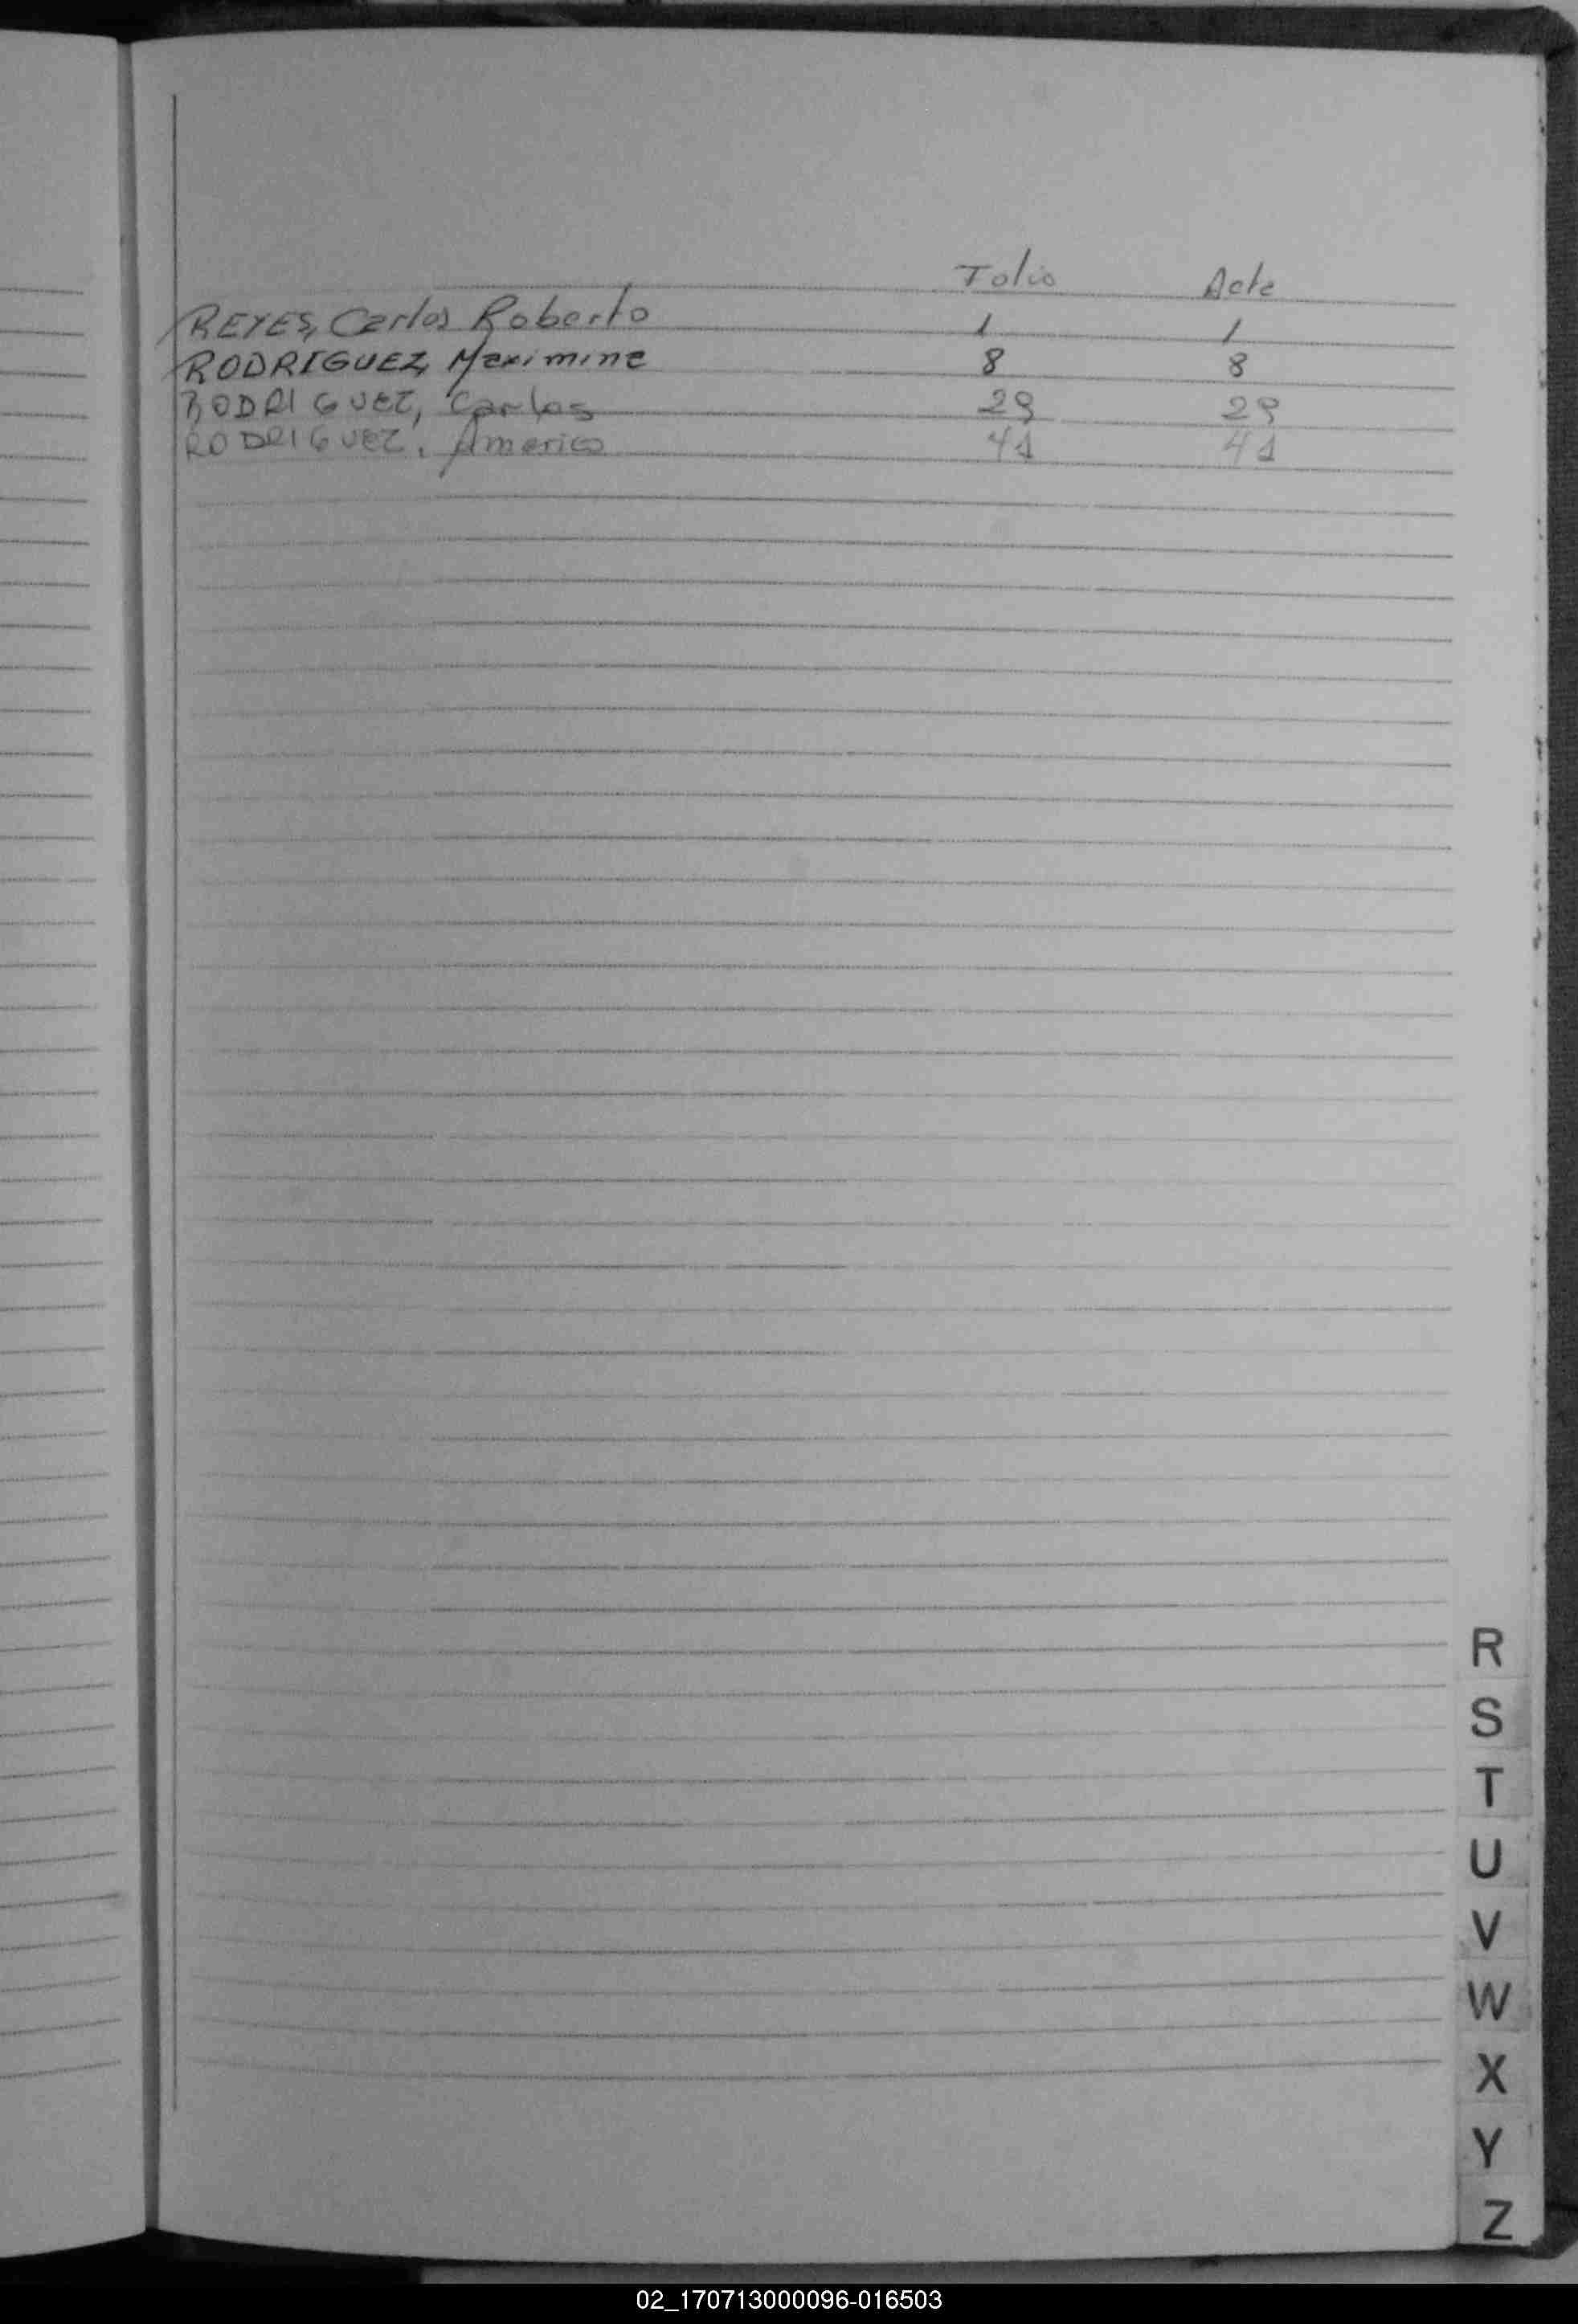 Folio Acta
REYES, Carlos Roberto 1 1
RODRIGUEZ, Maximina 8 8
RODRIGUEZ, Carlos 29 29
RODRIGUEZ, Americo 41 41
R
S
T
U
V
W
X
Y
Z
02_170713000096-016503